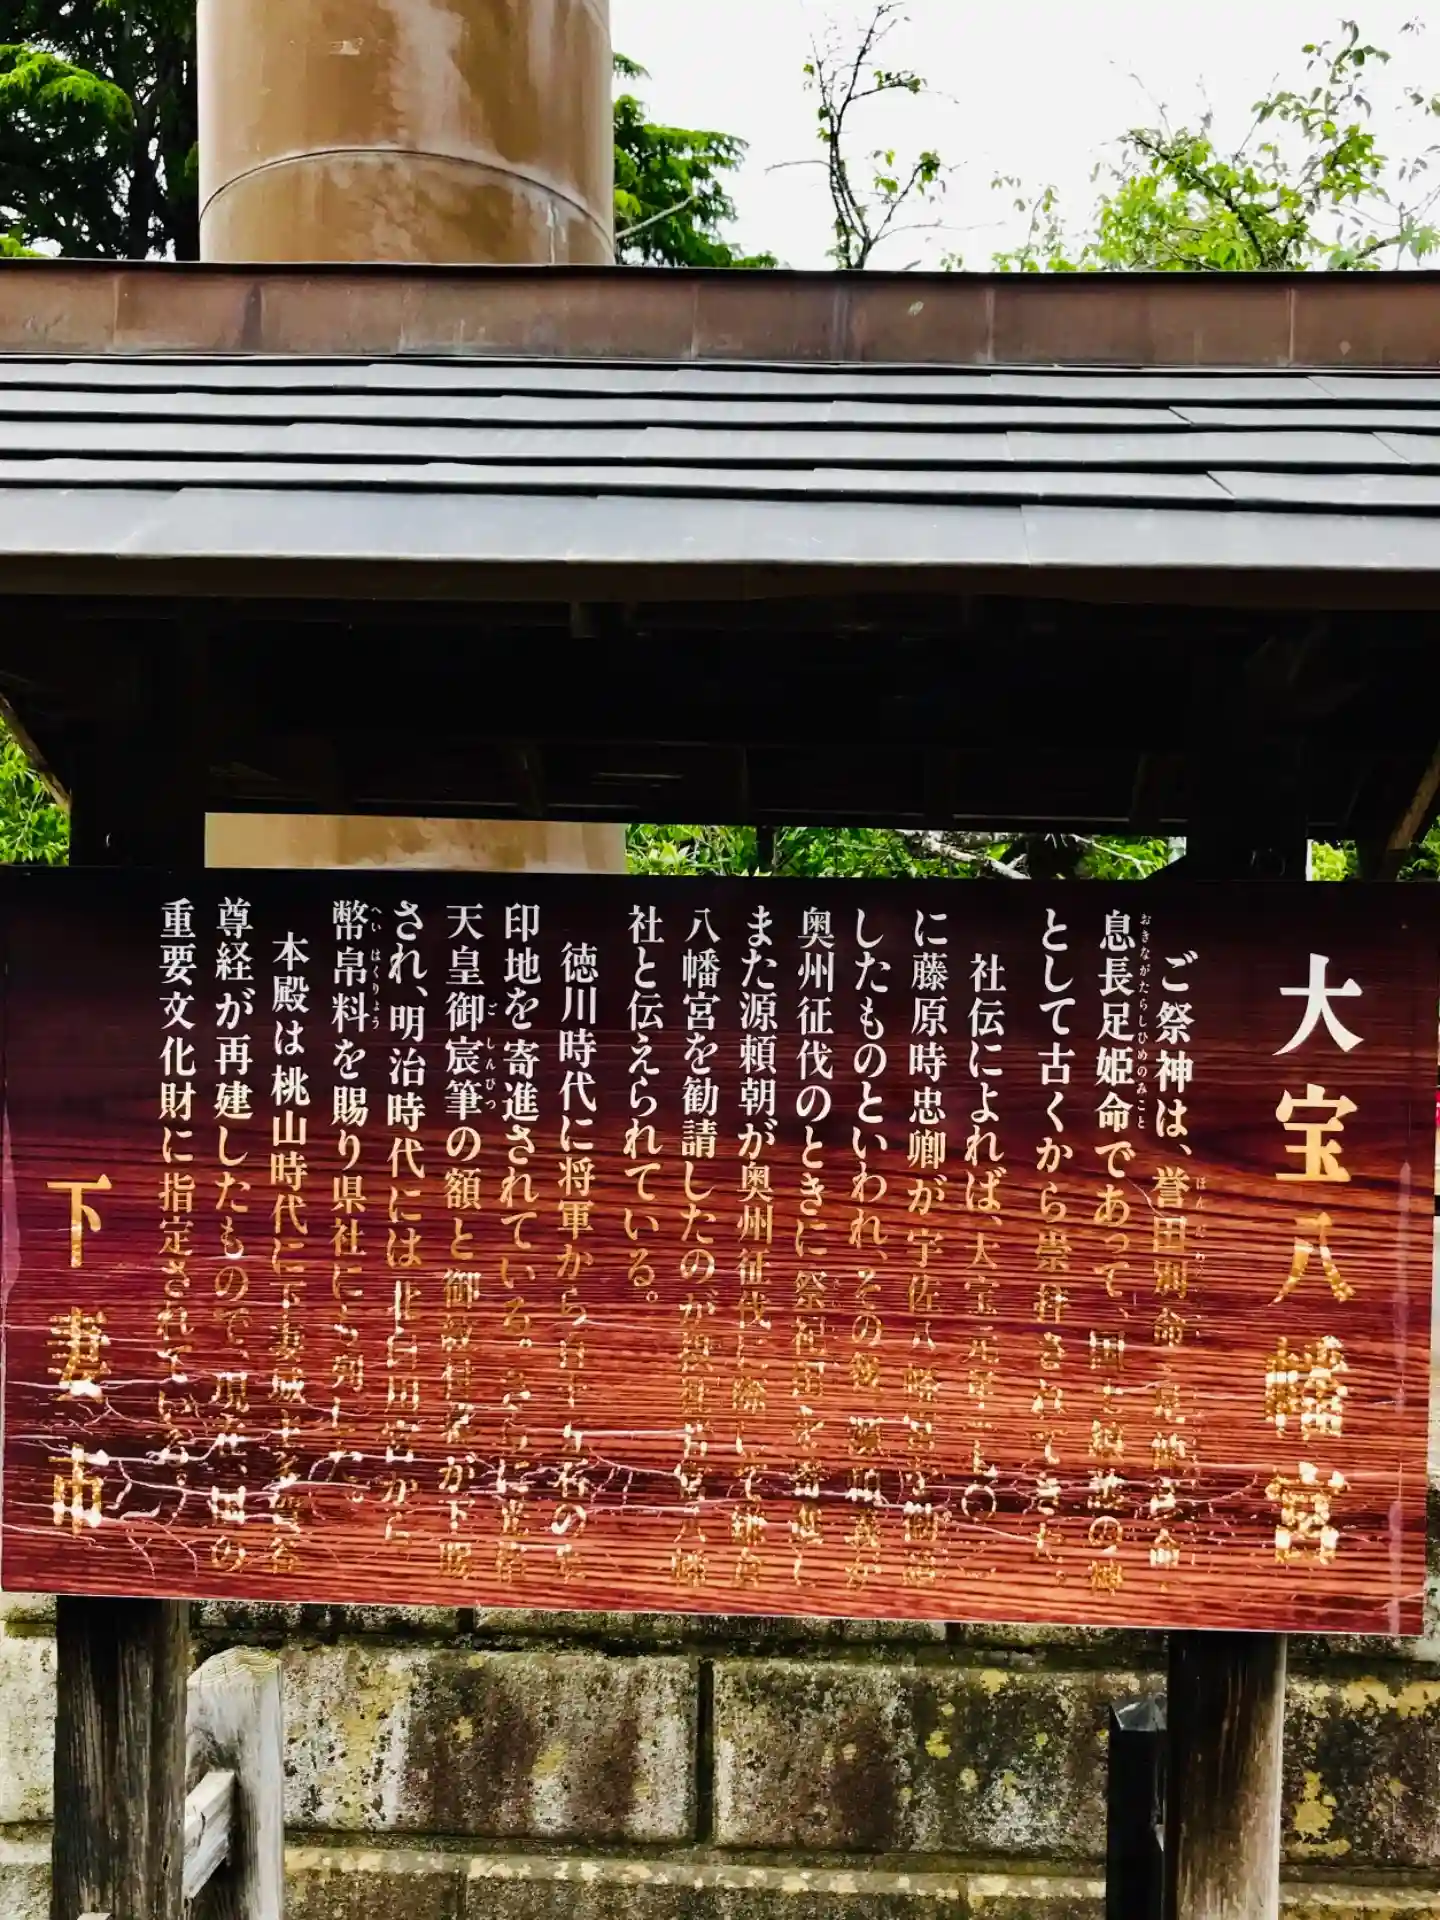 大宝八幡宮
ご祭神は、誉田別命
ほんだわ
息長足姫命であって、国土経営の神
おきながたらしひめのみこと
として古くから崇拝されてきた。
社伝によれば、大宝元年
に藤原時忠卿が宇佐八幡宮を勧請
したものといわれ、その後、源頼義が
奥州征伐のときに祭祀田を寄進し
また源頼朝が奥州征伐に際して
八幡宮を勧請したのが摂社若宮八幡
社と伝えられている。
徳川時代に将軍から百十五石の朱
印地を寄進されている。さらに光格
天皇御宸筆の額と御
ごしんぴつ
が下賜
され、明治時代には北白川宮から
幣帛料を賜り県社に列した。
へいはくりょう
本殿は桃山時代に下妻城主多賀谷
尊経が再建したもので、現在、国の
重要文化財に指定されている。
下妻市